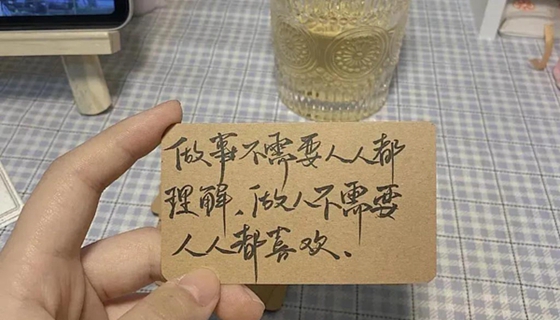 做事不需要人人都
理解、做人不需要
人人都喜欢、